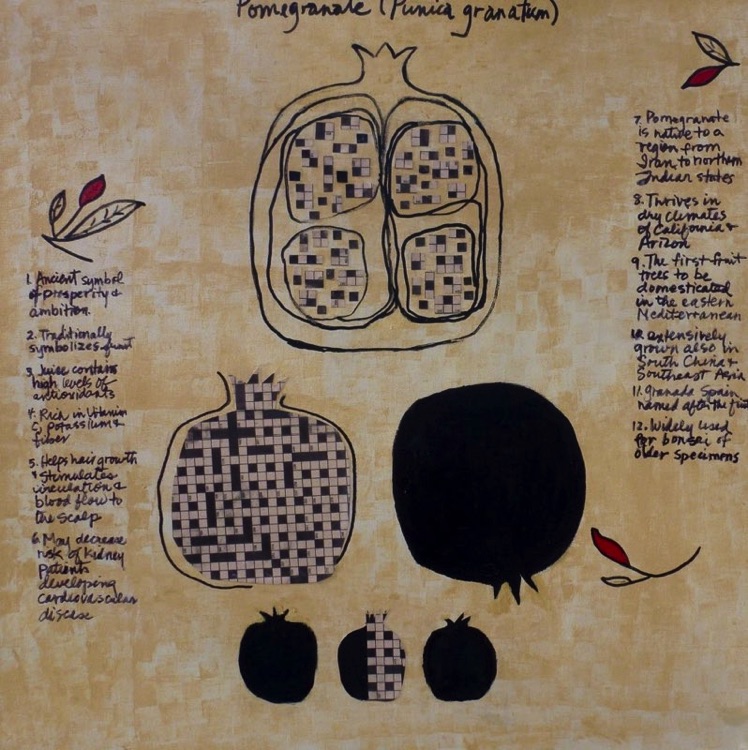 Pomegranate (Punica granatum)
1. Ancient symbol
of prosperity &
ambition.
2. Traditionally
symbolizes
3. Juice contains
high levels of
antioxidants
4. Rich in Vitamin
C, potassium &
fiber
5. Helps hair growth
& stimulates
circulation &
blood flow to
the scalp
6. May decrease
risk of kidney
patients
developing
cardiovascular
disease
7. Pomegranate
is native to a
region from
Iran to northern
Indian states
8. Thrives in
dry climates
of California &
Arizon
9. The first fruit
trees to be
domesticated
in the eastern
Mediterranean
10. extensively
grown also in
South China &
Southeast Asia
11. Granada Spain
named after the
12. Widely used
for bonsai of
older specimens